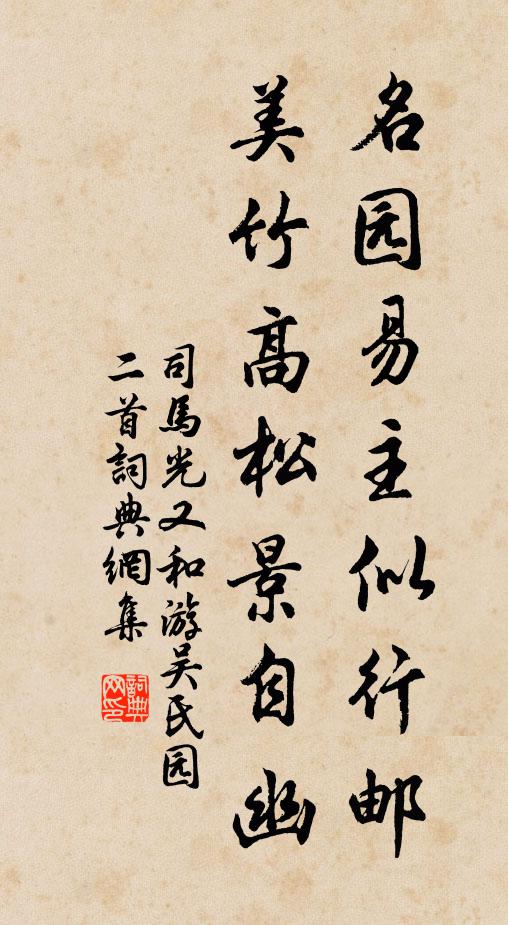 名园易主似行邮
美竹高松景自幽
司馬光又和游吴氏园
二首詞典網集
詞典网印